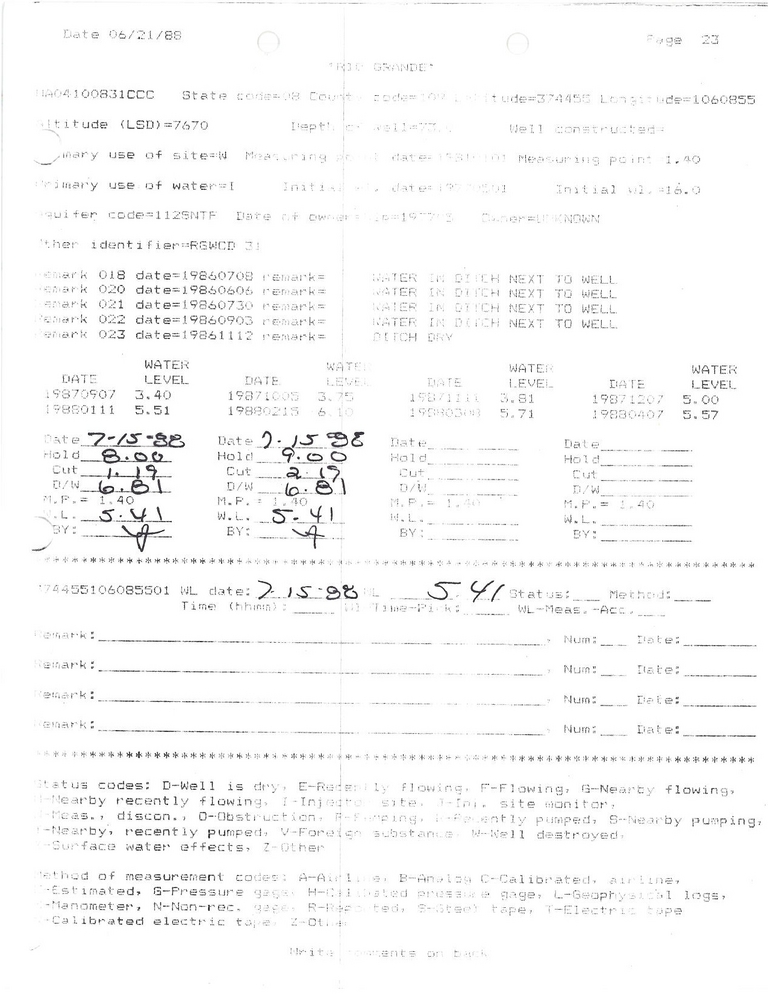 Date 06/21/88 Page 23
"RIO GRANDE"
NA04100831CCC State code=08 County code=109 Latitude=374455 Longitude=1060855
ltitude (LSD)=7670 Depth of well= Well constructed=
imary use of site=W Measuring point date=19810101 Measuring point 1.40
rimary use of water=I Initial wl. date= Initial wl.=16.0
quifer code=112SNTF Date of owner Owner=UNKNOWN
ther identifier=RGWCD 31
emark 018 date=19860708 remark= WATER IN DITCH NEXT TO WELL
emark 020 date=19860606 remark= WATER IN DITCH NEXT TO WELL
emark 021 date=19860730 remark= WATER IN DITCH NEXT TO WELL
emark 022 date=19860903 remark= WATER IN DITCH NEXT TO WELL
emark 023 date=19861112 remark= DITCH DRY
WATER WATER WATER WATER
DATE LEVEL DATE LEVEL DATE LEVEL DATE LEVEL
19870907 3.40 19871005 3.75 19871111 3.81 19871207 5.00
19880111 5.51 19880215 6.10 19880308 5.71 19880407 5.57
Date 7-15-88 Date 7-15-88 Date Date
Hold 8.00 Hold 9.00 Hold Hold
Cut 1.19 Cut 2.19 Cut Cut
D/W 6.81 D/W 6.81 D/W D/W
M.P.= 1.40 M.P.= 1.40 M.P.= 1.40 M.P.= 1.40
W.L. 5.41 W.L. 5.41 W.L. W.L.
BY: BY: BY: BY:
******************************************************************************
374455106085501 WL date: 7-15-88 WL 5.41 Status: Method:
Time (hhmm): Time-Pick: WL-Meas.-Acc.
Remark: , Num: Date:
Remark: , Num: Date:
Remark: , Num: Date:
Remark: , Num: Date:
******************************************************************************
Status codes: D-Well is dry, E-Recently flowing, F-Flowing, G-Nearby flowing,
-Nearby recently flowing, I-Injector site, J-Inj. site monitor,
-Meas., discon., O-Obstruction, P-Pumping, R-Recently pumped, S-Nearby pumping,
-Nearby, recently pumped, V-Foreign substance, W-Well destroyed,
-Surface water effects, Z-Other
ethod of measurement codes: A-Airline, B-Analog C-Calibrated, airline,
-Estimated, G-Pressure gage, H-Calibrated pressure gage, L-Geophysical logs,
-Manometer, N-Non-rec. gage, R-Reported, S-Steel tape, T-Electric tape
-Calibrated electric tape, Z-Other
Write comments on back